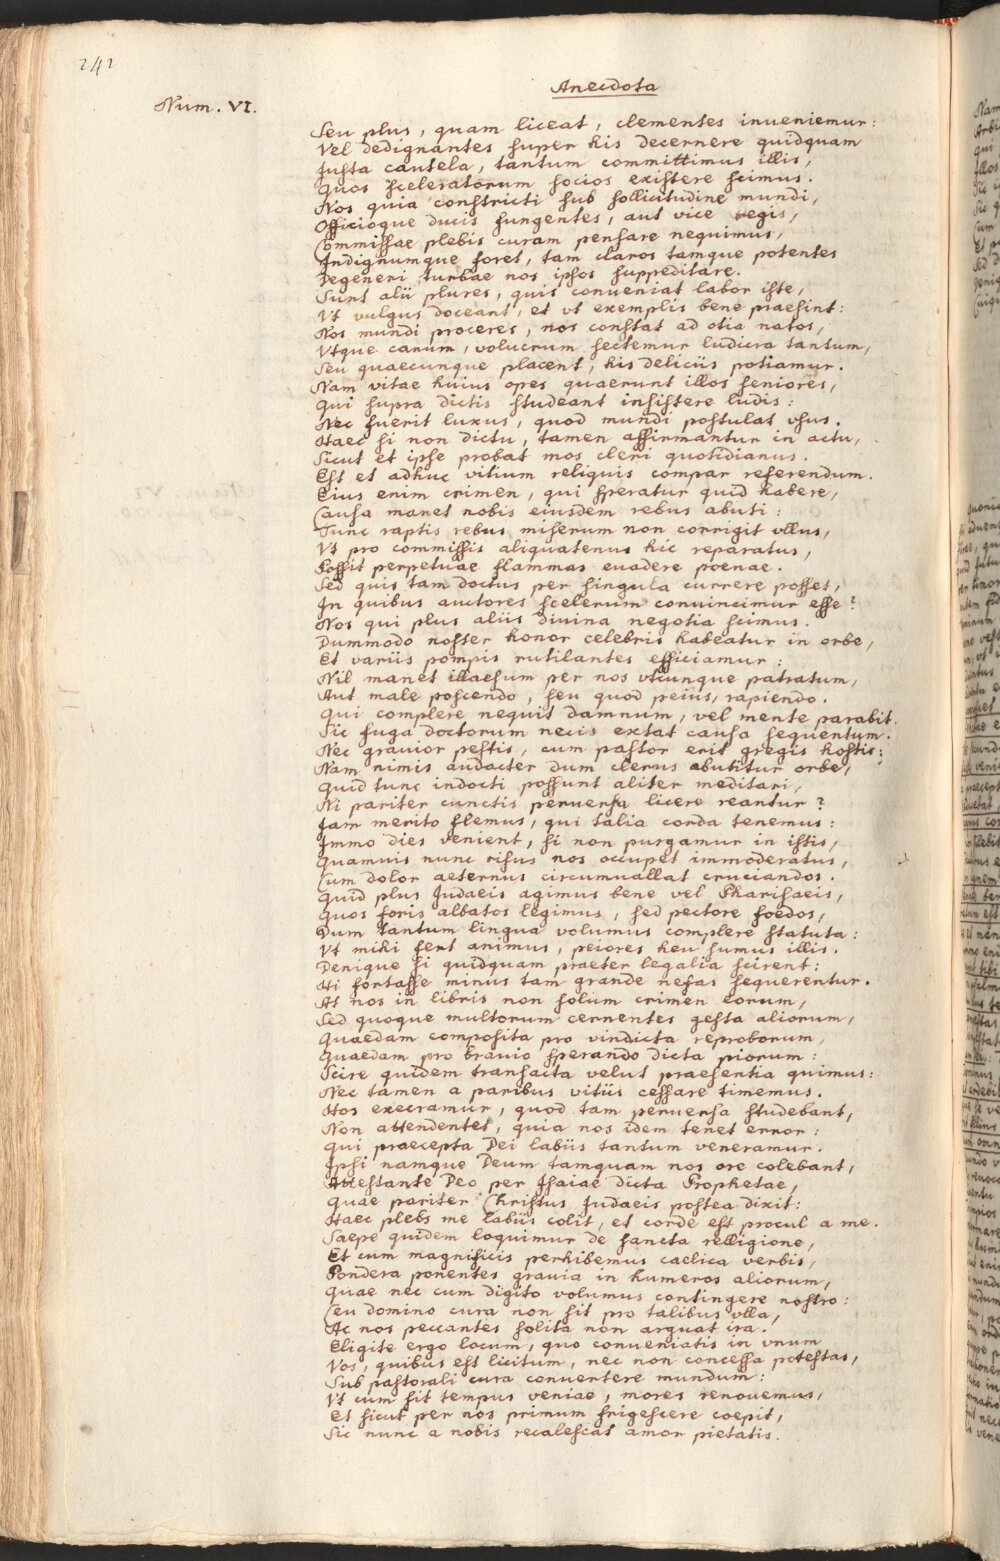 242
Anecdota
Num. VI.
Seu plus, quam liceat, clementes inueniemur:
Vel dedignantes super his decernere quidquam
Iusta cautela, tantum committimus illis,
Quos sceleratorum socios existere scimus.
Nos quia constricti sub sollicitudine mundi,
Officioque ducis fungentes, aut vice regis,
Commissae plebis curam pensare nequimus,
Indignumque foret, tam claros tamque potentes
Degeneri turbae nos ipsos suppeditare.
Sunt alii plures, quis conueniat labor iste,
Vt vulgus doceant, et vt exemplis bene praesint:
Nos mundi proceres, nos constat ad otia natos,
Vtque canum, volucrum sectemur ludicra tantum,
Seu quaecunque placent, his deliciis potiamur.
Nam vitae huius opes quaerunt illos seniores,
Qui supra dictis studeant insistere ludis:
Nec fuerit luxus, quod mundi postulat vsus.
Haec si non dictu, tamen affirmantur in actu,
Sicut et ipse probat mos cleri quotidianus.
Est et adhuc vitium reliquis compar referendum.
Eius enim crimen, qui speratur quid habere,
Causa manet nobis eiusdem rebus abuti:
Tunc raptis rebus miserum non corrigit vllus,
Vt pro commissis aliquatenus hic reparatus,
Possit perpetuae flammas euadere poenae.
Sed quis tam doctus per singula currere posset,
In quibus auctores scelerum conuincimur esse?
Nos qui plus aliis diuina negotia scimus.
Dummodo noster honor celebris habeatur in orbe,
Et variis pompis rutilantes efficiamur:
Nil manet illaesum per nos vtcunque patratum,
Aut male poscendo, seu quod peius, rapiendo.
Qui complere nequit damnum, vel mente parabit.
Sic fuga doctorum necis extat causa sequentum.
Nec grauior pestis, cum pastor erit gregis hostis:
Nam nimis audacter dum clerus abutitur orbe,
Quid tunc indocti possunt aliter meditari,
Ni pariter cunctis peruersa licere reantur?
Iam merito flemus, qui talia corda tenemus:
Immo dies venient, si non purgamur in istis,
Quamuis nunc risus nos occupet immoderatus,
Cum dolor aeternus circumuallat cruciandos.
Quid plus Iudaeis agimus bene vel Pharisaeis,
Quos foris albatos legimus, sed pectore foedos,
Dum tantum lingua volumus complere statuta:
Vt mihi fert animus, peiores heu sumus illis.
Denique si quidquam praeter legalia scirent:
Hi fortasse minus tam grande nefas sequerentur.
At nos in libris non solum crimen eorum,
Sed quoque multorum cernentes gesta aliorum,
Quaedam composita pro vindicta reproborum,
Quaedam pro brauio sperando dicta piorum:
Scire quidem transacta velut praesentia quimus:
Nec tamen a paribus vitiis cessare timemus.
Hos execramur, quod tam peruersa studebant,
Non attendentes, quia nos idem tenet error:
Qui praecepta Dei labiis tantum veneramur.
Ipsi namque Deum tamquam nos ore colebant,
Attestante Deo per Isaiae dicta Prophetae,
Quae pariter Christus Iudaeis postea dixit:
Haec plebs me labiis colit, et corde est procul a me.
Saepe quidem loquimur de sancta relligione,
Et cum magnificis perhibemus caelica verbis,
Pondera ponentes grauia in humeros aliorum,
Quae nec cum digito volumus contingere nostro:
Ceu domino cura non sit pro talibus vlla,
Ac nos peccantes solita non arguat ira.
Eligite ergo locum, quo conueniatis in vnum
Vos, quibus est licitum, nec non concessa potestas,
Sub pastorali cura conuertere mundum:
Vt cum sit tempus veniae, mores renouemus,
Et sicut per nos primum frigescere coepit,
Sic nunc a nobis recalescat amor pietatis.